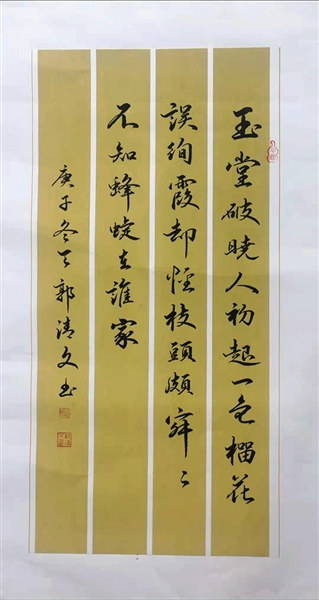 玉堂破曉人初起一色榴花
誤絢霞却怪枝頭頗寂々
不知蜂蝶在誰家
庚子冬天郭清文书